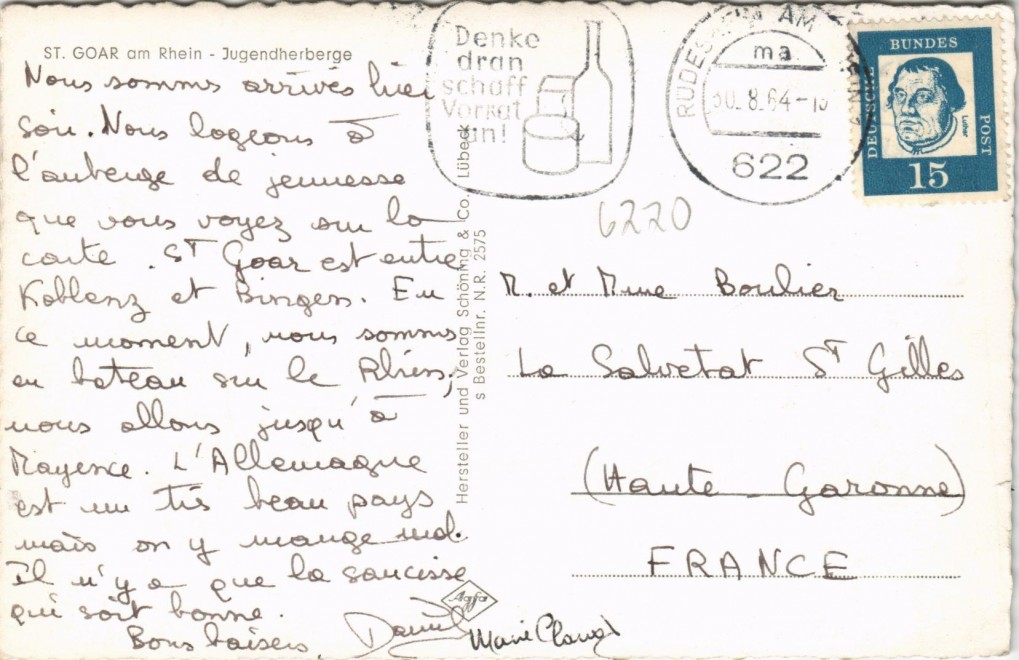 ST. GOAR am Rhein - Jugendherberge
Nous sommes arrivés hier
soir. Nous logeons à
l'auberge de jeunesse
que vous voyez sur la
carte. ST Goar est entre
Koblenz et Bingen. En
ce moment, nous sommes
en bateau sur le Rhin,
nous allons jusqu'à
Mayence. L'Allemagne
est un très beau pays
mais on y mange mal.
Il n'y a que la saucisse
qui soit bonne.
Bons baisers,
Marie
Agfa
Hersteller und Verlag Schöning & Co., Lübeck
s Bestellnr. N.R. 2575
Denke
dran
schaff
Vorrat
an!
RÜDESHEIM AM
ma.
30. 8. 64-10
622
DEUTSCHE
BUNDES
POST
Luther
15
6220
M. et Mme Boulier
La Salvetat ST Gilles
(Haute Garonne)
FRANCE